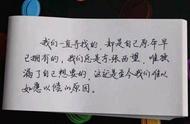 我们一直寻找的,却是自己原本早
已拥有的,我们总是东张西望,唯独
漏了自己想要的,这就是至今我们难以
如愿以偿的原因。